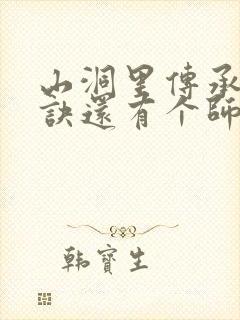 山洞里傳承
訣還有个師
韩寶生